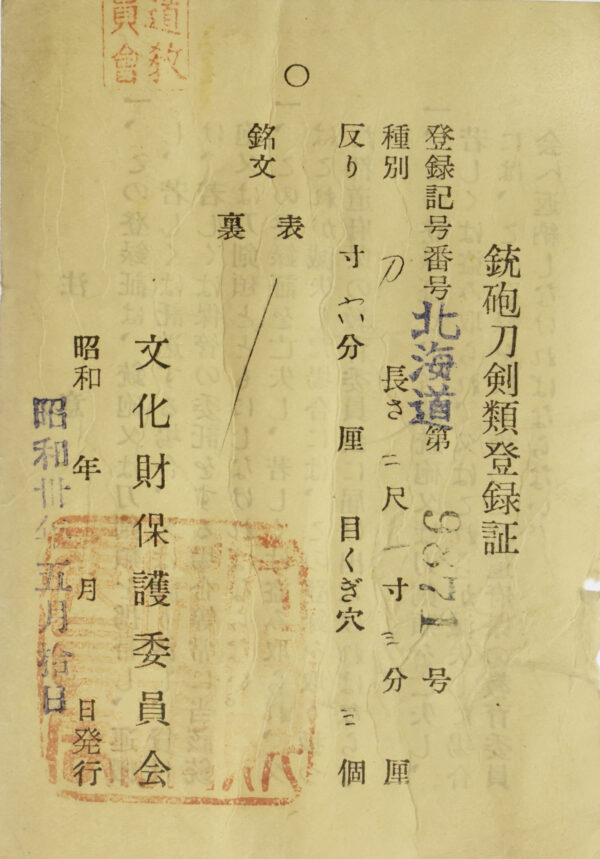 道教
員會
銃砲刀剣類登録証
登録記号番号北海道第9871号
種別 刀 長さ 二尺一寸三分 厘
反り 寸六分 厘 目くぎ穴 三個
銘文 表
裏
文化財保護委員会
昭和 年 月 日発行
昭和卅年五月拾日